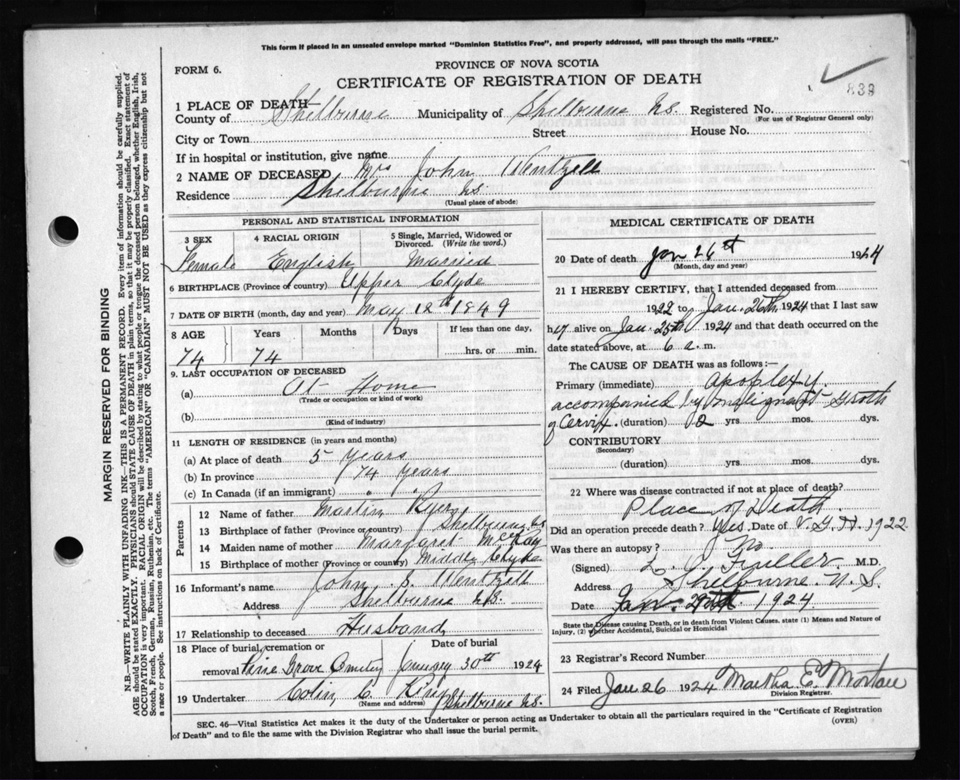 This form if placed in an unsealed envelope marked "Dominion Statistics Free", and properly addressed, will pass through the mails "FREE."
FORM 6.
PROVINCE OF NOVA SCOTIA
CERTIFICATE OF REGISTRATION OF DEATH
833
1 PLACE OF DEATH—
County of Shelburne Municipality of Shelburne N.S. Registered No.
(For use of Registrar General only)
City or Town Street House No.
If in hospital or institution, give name
2 NAME OF DECEASED Mrs John Wentzell
Residence Shelburne N.S.
(Usual place of abode)
PERSONAL AND STATISTICAL INFORMATION
3 SEX 4 RACIAL ORIGIN 5 Single, Married, Widowed or Divorced. (Write the word.)
Female English Married
6 BIRTHPLACE (Province or country) Upper Clyde
7 DATE OF BIRTH (month, day and year) May 12th 1849
8 AGE Years Months Days If less than one day,
74 74 hrs. or min.
9. LAST OCCUPATION OF DECEASED
(a) At Home
(Trade or occupation or kind of work)
(b)
(Kind of industry)
11 LENGTH OF RESIDENCE (in years and months)
(a) At place of death 5 years
(b) In province 74 years
(c) In Canada (if an immigrant) " "
Parents
12 Name of father Martin
13 Birthplace of father (Province or country) Shelburne N.S.
14 Maiden name of mother Margaret McKay
15 Birthplace of mother (Province or country) Middle Clyde
16 Informant's name John S. Wentzell
Address Shelburne N.S.
17 Relationship to deceased Husband
18 Place of burial, cremation or removal Pine Grove Cemetery Date of burial January 30th 1924
19 Undertaker Colin C. Shelburne N.S.
(Name and address)
MEDICAL CERTIFICATE OF DEATH
20 Date of death Jan 26th 1924
(Month, day and year)
21 I HEREBY CERTIFY, that I attended deceased from
1922 to Jan. 26th 1924 that I last saw
her alive on Jan. 25th 1924 and that death occurred on the
date stated above, at 6 a.m.
The CAUSE OF DEATH was as follows:—
Primary (immediate) apoplexy
accompanied by malignant Groth
of Cervix (duration) 2 yrs. mos. dys.
CONTRIBUTORY
(Secondary)
(duration) yrs. mos. dys.
22 Where was disease contracted if not at place of death?
Place of Death
Did an operation precede death? Yes, Date of V.G.H. 1922
Was there an autopsy? No
(Signed) Fuller M.D.
Address Shelburne N.S.
Date Jan. 1924
State the Disease causing Death, or in death from Violent Causes, state (1) Means and Nature of Injury, (2) whether Accidental, Suicidal or Homicidal
23 Registrar's Record Number
24 Filed Jan 26 1924 Martha E. Morton
Division Registrar.
SEC. 46—Vital Statistics Act makes it the duty of the Undertaker or person acting as Undertaker to obtain all the particulars required in the "Certificate of Registration
of Death" and to file the same with the Division Registrar who shall issue the burial permit.
(OVER)
MARGIN RESERVED FOR BINDING
N.B.—WRITE PLAINLY WITH UNFADING INK—THIS IS A PERMANENT RECORD. Every item of information should be carefully supplied.
AGE should be stated EXACTLY. PHYSICIANS should STATE CAUSE OF DEATH in plain terms, so that it may be properly classified. Exact statement of
OCCUPATION is very important. RACIAL ORIGIN will be described by stating to what people or tongue the deceased person belonged, whether English, Irish,
Scotch, French, German, Russian, Ruthenian, etc. The terms "AMERICAN" or "CANADIAN" MUST NOT BE USED as they express citizenship but not
a race or people. See instructions on back of Certificate.